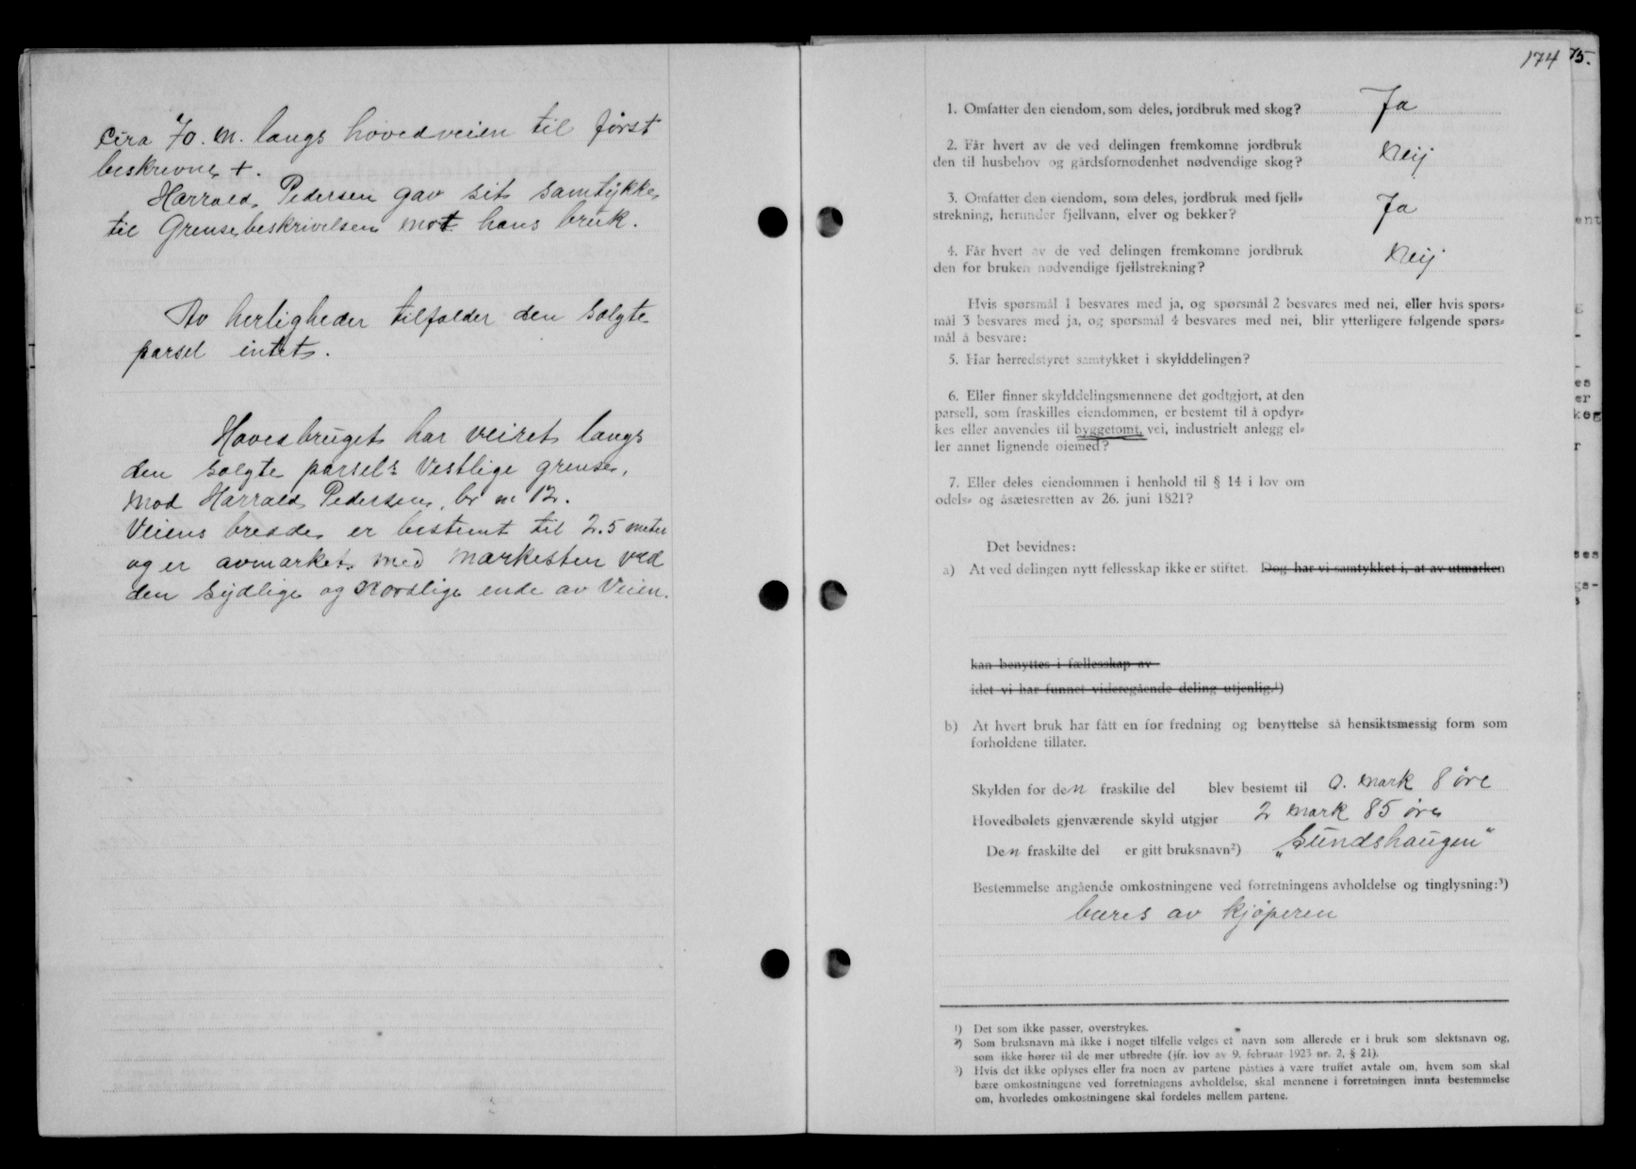 Cira 70. m. langs hovedveien til først
beskrevne +.
Harrald Pedersen gav sit samtykke
til Grensebeskrivelsen mot hans bruk.
Av herligheder tilfalder den Solgte
parsel intet.
Hovedbruget har veiret langs
den solgte parsels Vestlige grense,
mod Harrald Pedersen, br nr 12.
Veiens bredde er bestemt til 2.5 meter
og er avmarket med markesten ved
den sydlige og Nordlige ende av Veien.
174 75.
1. Omfatter den eiendom, som deles, jordbruk med skog? Ja
2. Får hvert av de ved delingen fremkomne jordbruk
den til husbehov og gårdsfornødenhet nødvendige skog? Neij
3. Omfatter den eiendom, som deles, jordbruk med fjell-
strekning, herunder fjellvann, elver og bekker? Ja
4. Får hvert av de ved delingen fremkomne jordbruk
den for bruken nødvendige fjellstrekning? Neij
Hvis spørsmål 1 besvares med ja, og spørsmål 2 besvares med nei, eller hvis spørs-
mål 3 besvares med ja, og spørsmål 4 besvares med nei, blir ytterligere følgende spørs-
mål å besvare:
5. Har herredstyret samtykket i skylddelingen?
6. Eller finner skylddelingsmennene det godtgjort, at den
parsell, som fraskilles eiendommen, er bestemt til å opdyr-
kes eller anvendes til byggetomt, vei, industrielt anlegg el-
ler annet lignende øiemed?
7. Eller deles eiendommen i henhold til § 14 i lov om
odels- og åsætesretten av 26. juni 1821?
Det bevidnes:
a) At ved delingen nytt fellesskap ikke er stiftet. Dog har vi samtykket i, at av utmarken
kan benyttes i fællesskap av
idet vi har funnet videregående deling utjenlig.¹)
b) At hvert bruk har fått en for fredning og benyttelse så hensiktsmessig form som
forholdene tillater.
Skylden for den fraskilte del blev bestemt til 0. mark 8 øre
Hovedbølets gjenværende skyld utgjør 2 mark 85 øre
Den fraskilte del er gitt bruksnavn²) „Sundshaugen"
Bestemmelse angående omkostningene ved forretningens avholdelse og tinglysning:³)
bæres av kjøperen
¹) Det som ikke passer, overstrykes.
²) Som bruksnavn må ikke i noget tilfelle velges et navn som allerede er i bruk som slektsnavn og,
som ikke hører til de mer utbredte (jfr. lov av 9. februar 1923 nr. 2, § 21).
³) Hvis det ikke oplyses eller fra noen av partene påståes å være truffet avtale om, hvem som skal
bære omkostningene ved forretningens avholdelse, skal mennene i forretningen innta bestemmelse
om, hvorledes omkostningene skal fordeles mellem partene.